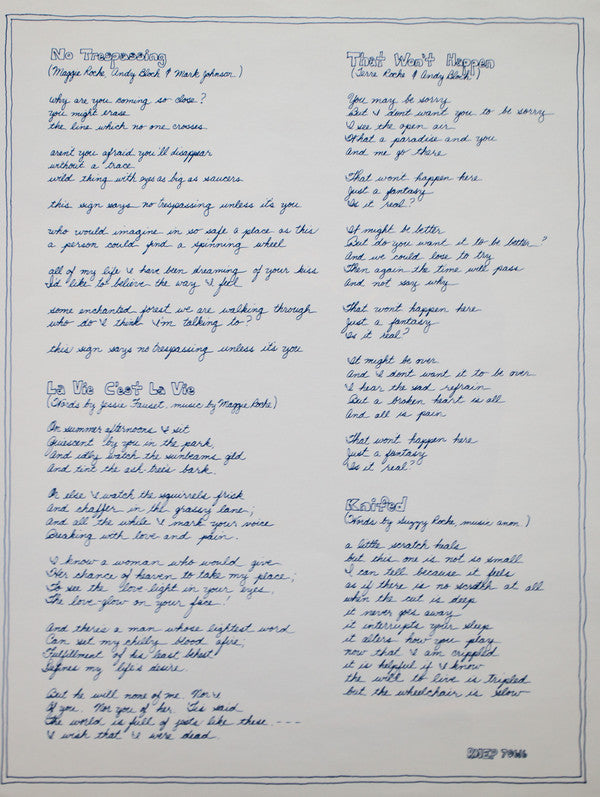 No Trespassing
(Maggie Roche, Andy Bloch & Mark Johnson)
why are you coming so close?
you might erase
the line which no one crosses
aren't you afraid you'll disappear
without a trace
wild thing with eyes as big as saucers
this sign says no trespassing unless it's you
who would imagine in so safe a place as this
a person could find a spinning wheel
all of my life I have been dreaming of your kiss
I'd like to believe the way I feel
some enchanted forest we are walking through
who do I think I'm talking to?
this sign says no trespassing unless it's you
La Vie C'est La Vie
(Words by Jessie Fauset, music by Maggie Roche)
On summer afternoons I sit
Quiescent by you in the park,
And idly watch the sunbeams gild
And tint the ash-trees bark.
Or else I watch the squirrels frisk
And chaffer in the grassy lane;
And all the while I mark your voice
Breaking with love and pain.
I know a woman who would give
Her chance of heaven to take my place;
To see the love light in your eyes,
The love-glow on your face!
And there's a man whose lightest word
Can set my chilly blood afire;
Fulfillment of his least behest
Defines my life's desire.
But he will none of me. Nor I
Of you. Nor you of her. 'Tis said
The world is full of jests like these ----
I wish that I were dead.
That Won't Happen
(Terre Roche & Andy Bloch)
You may be sorry
But I don't want you to be sorry
I see the open air
What a paradise and you
And me go there
That wont happen here
Just a fantasy
Is it real?
It might be better
But do you want it to be better?
And we could lose to try
Then again the time will pass
And not say why
That wont happen here
Just a fantasy
Is it real?
It might be over
And I dont want it to be over
I hear the sad refrain
But a broken heart is all
And all is pain
That wont happen here
Just a fantasy
Is it real?
Knifed
(Words by Suzzy Roche, music anon.)
a little scratch heals
but this one is not so small
I can tell because it feels
as if there is no scratch at all
when the cut is deep
it never goes away
it interrupts your sleep
it alters how you play
now that I am crippled
it is helpful if I know
the will to live is tripled
but the wheelchair is slow